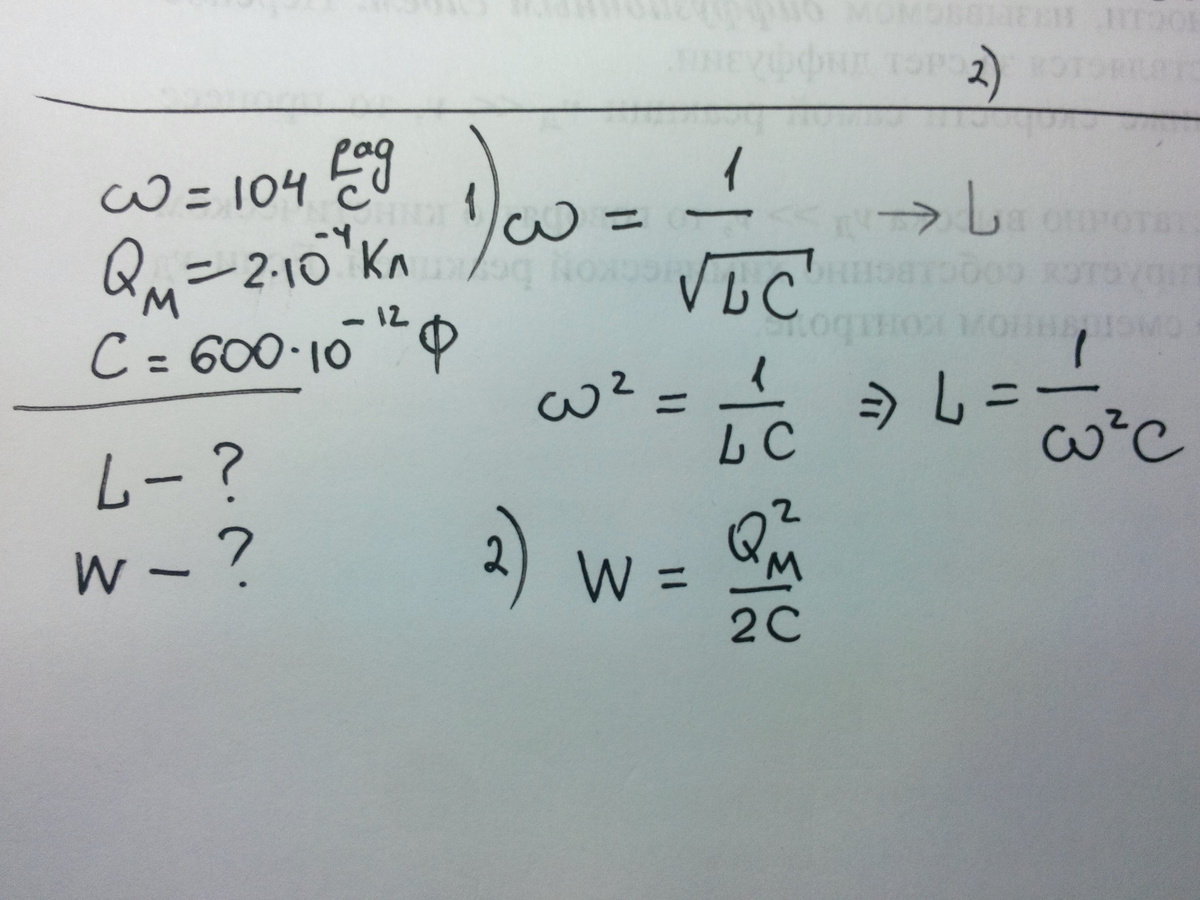 2)
ω = 104 рад/с
Q_М = 2·10⁻⁴ Кл
C = 600·10⁻¹² Ф
L – ?
W – ?
1) ω = 1/√(LC) → L
ω² = 1/(LC) ⇒ L = 1/(ω²C)
2) W = Q_М²/(2C)